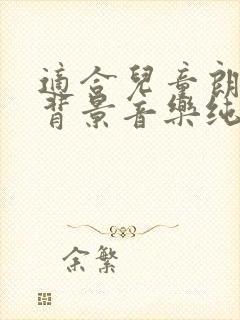 適合兒童朗
背景音樂純
余繁